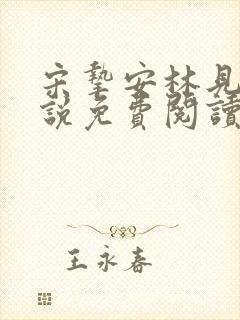 宋摯安林見
說免費閱讀
王永春